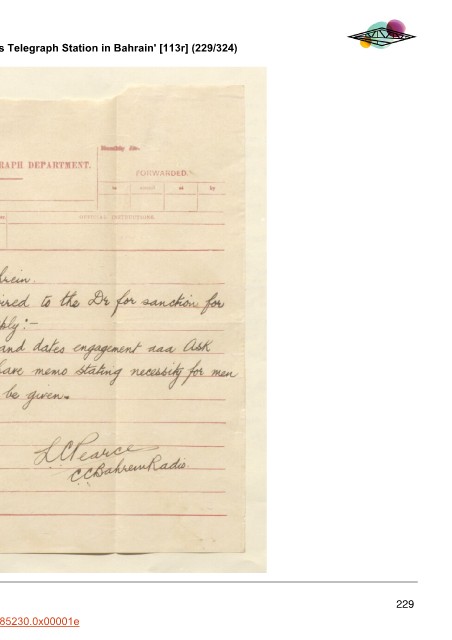 s Telegraph Station in Bahrain' [113r] (229/324)
RAPH DEPARTMENT.
FORWARDED.
to
at
by
OFFICIAL INSTRUCTIONS.
hrein.
ired to the Dr for sanction for
bly:-
and dates engagement aaa Ask
have memo stating necessity for men
be given.
L.C. Pearce
C.C. Bahrein Radio.
229
85230.0x00001e